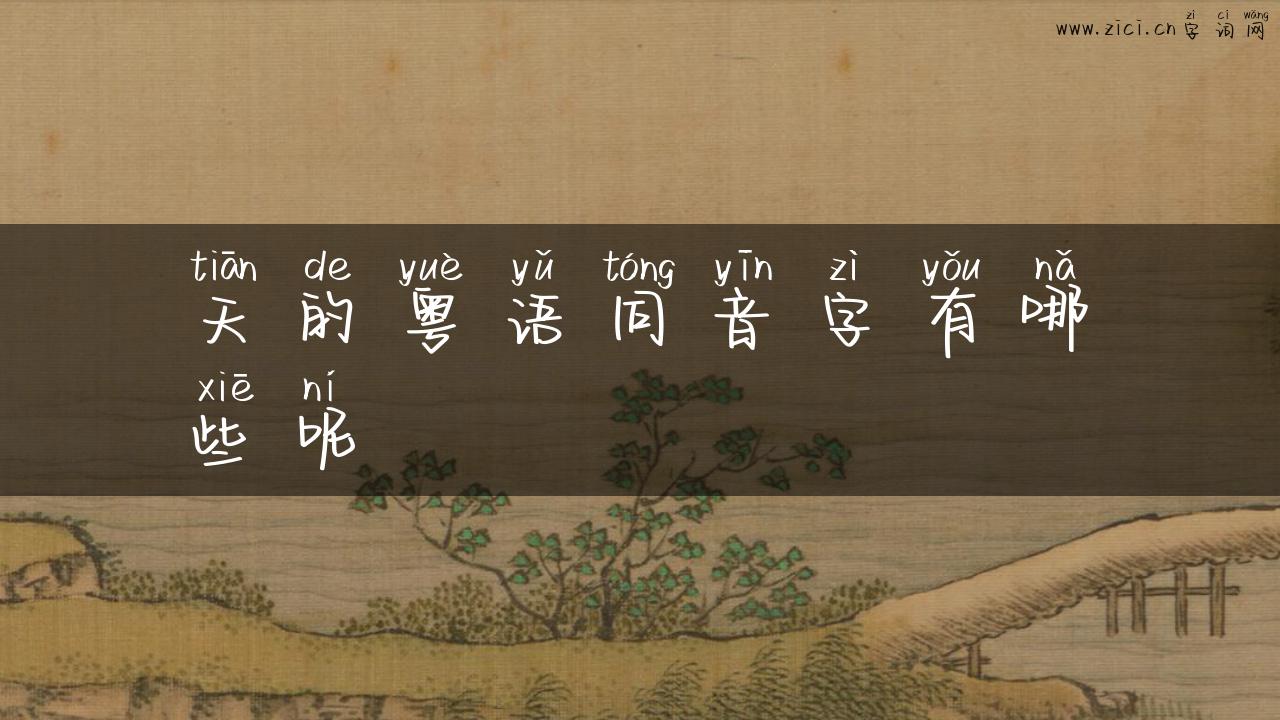 zì cí wǎng
www.zici.cn 字词网
tiān de yuè yǔ tóng yīn zì yǒu nǎ
天的粤语同音字有哪
xiē ní
些呢